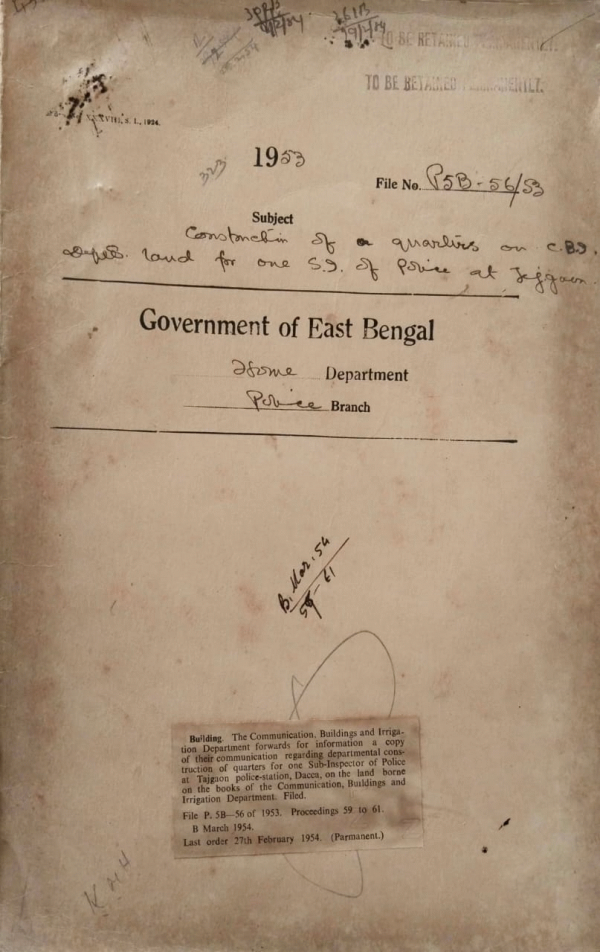 TO BE RETAINED PERMANENTLY.
TO BE RETAINED PERMANENTLY.
XXXVIII, S. I., 1924.
323
1953
File No. P5B-56/53
Subject
Construction of a quarters on C.B.I.
Deptt. land for one S.I. of Police at Tejgaon.
Government of East Bengal
Home Department
Police Branch
B. Mar. 54
59-61
Building. The Communication, Buildings and Irriga-
tion Department forwards for information a copy
of their communication regarding departmental cons-
truction of quarters for one Sub-Inspector of Police
at Tajgaon police-station, Dacca, on the land borne
on the books of the Communication, Buildings and
Irrigation Department. Filed.
File P. 5B—56 of 1953. Proceedings 59 to 61.
B March 1954.
Last order 27th February 1954. (Parmanent.)